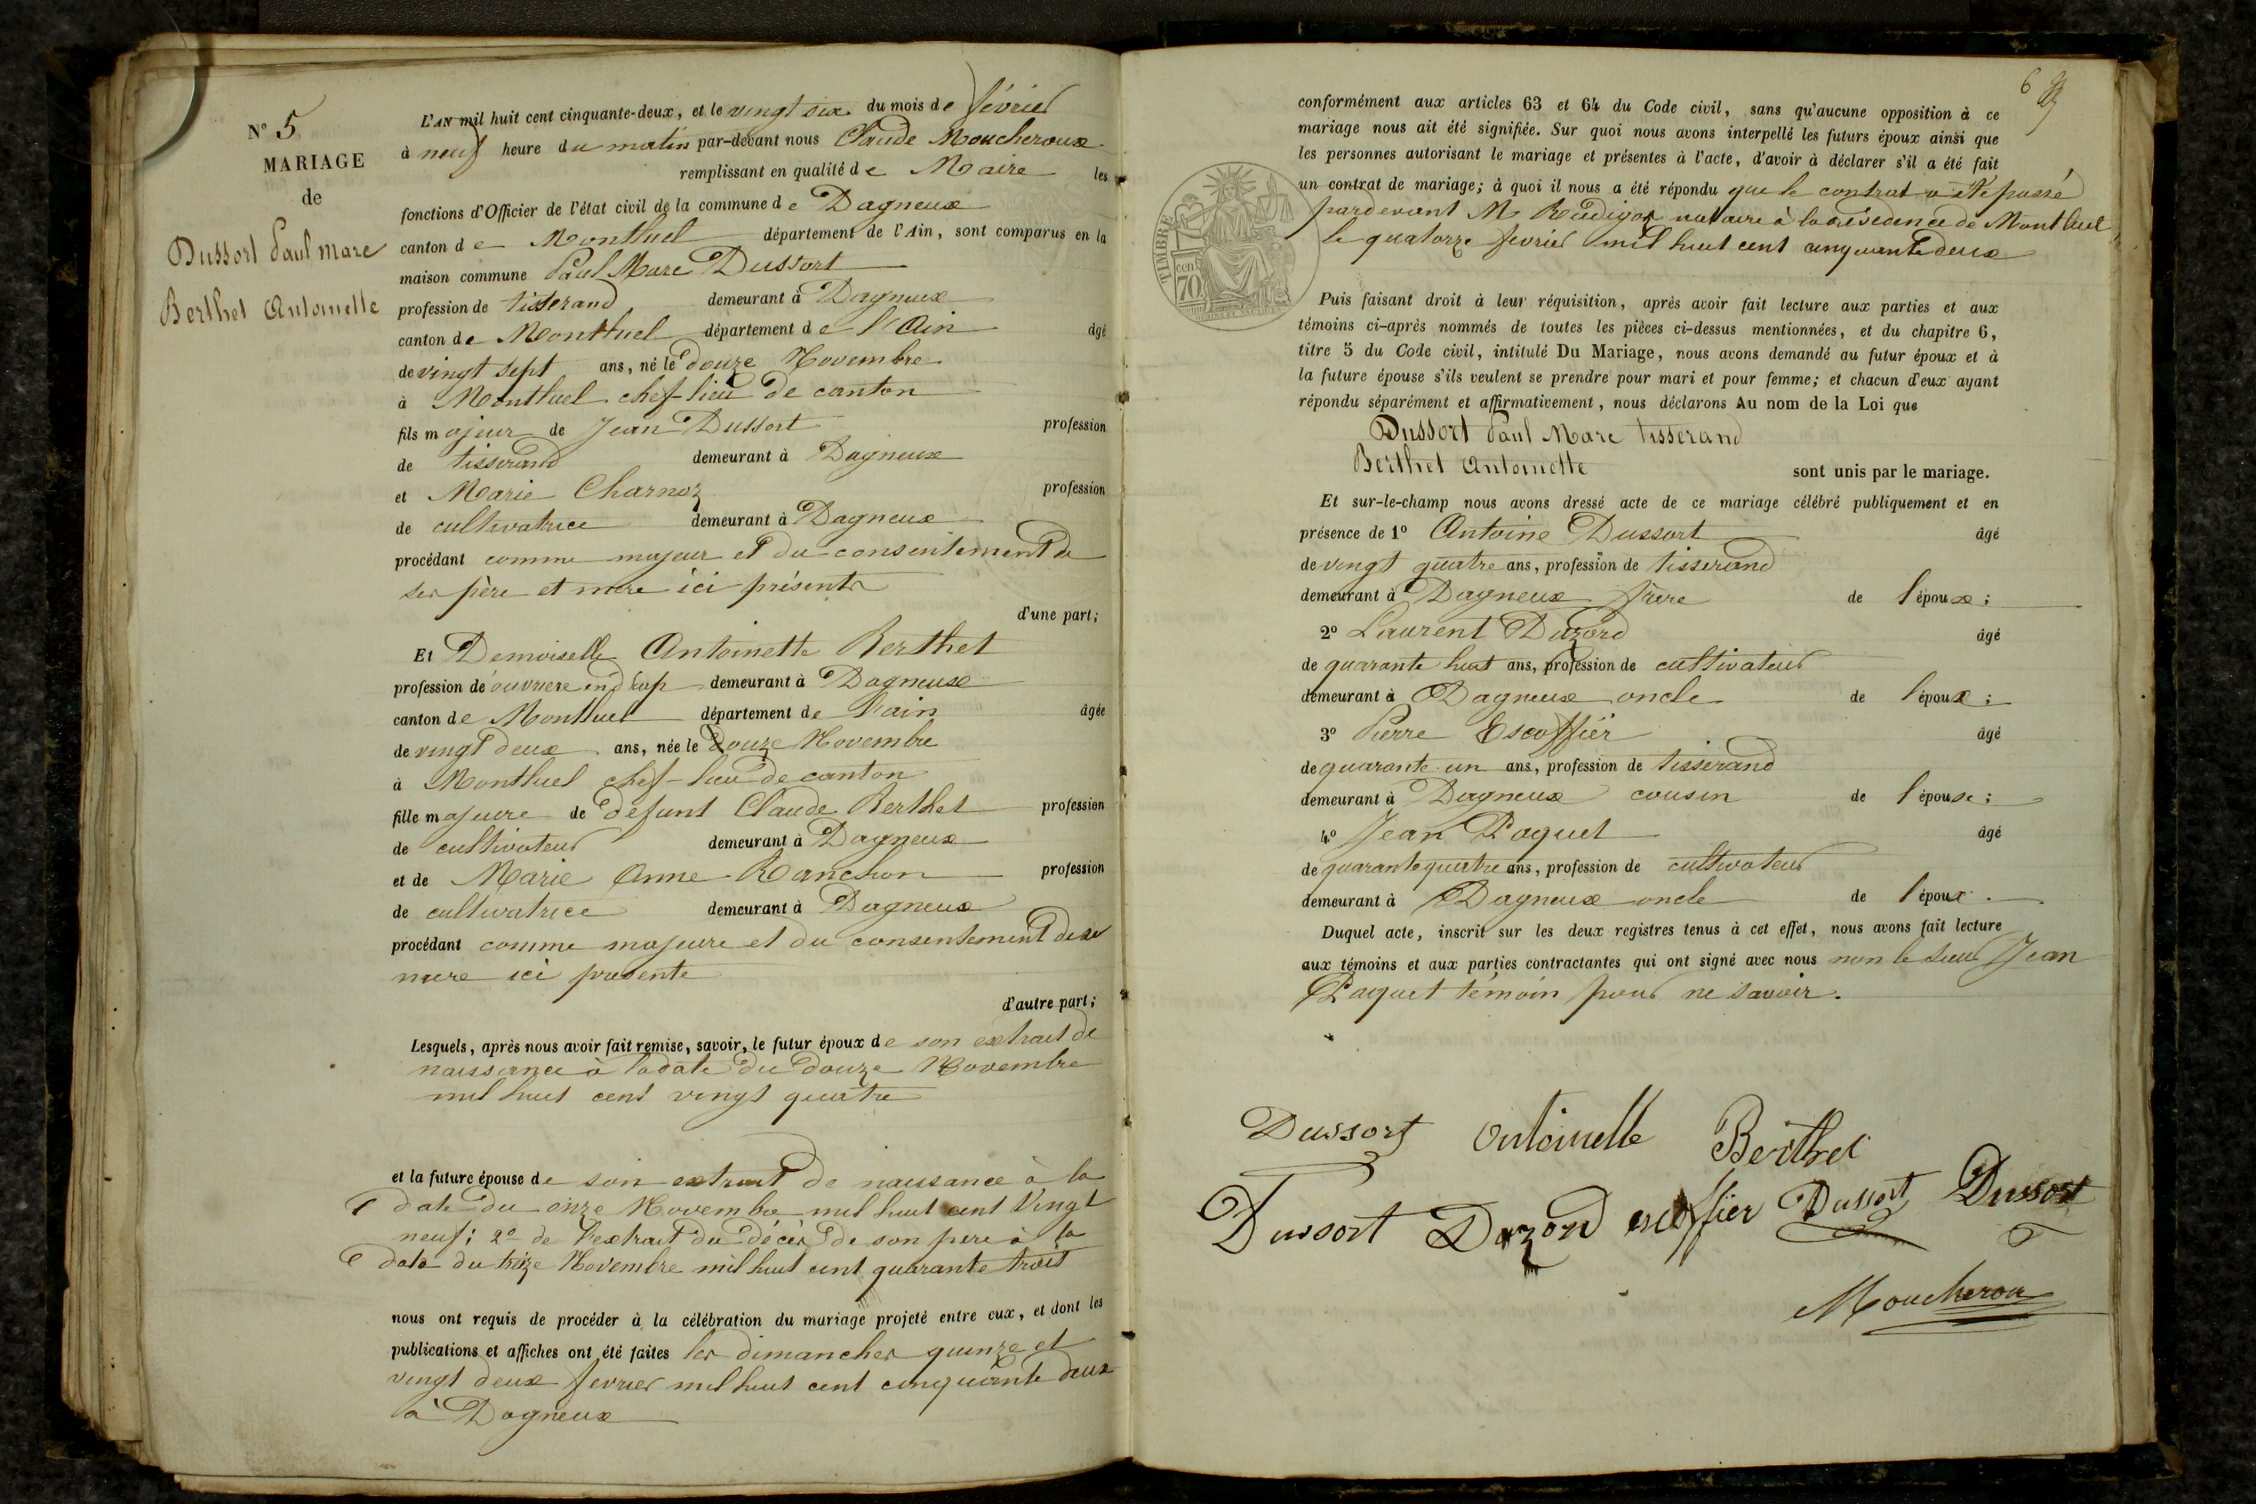 N° 5
MARIAGE
de
Dussort Paul Marc
Berthet Antoinette
L'AN mil huit cent cinquante-deux, et le vingt six du mois de février
à neuf heure du matin par-devant nous Claude Moucheroux
remplissant en qualité de Maire les
fonctions d'Officier de l'état civil de la commune de Dagneux
canton de Montluel département de l'Ain, sont comparus en la
maison commune Paul Marc Dussort
profession de tisserand demeurant à Dagneux
canton de Montluel département de l'Ain âgé
de vingt sept ans, né le douze Novembre
à Montluel chef-lieu de canton
fils majeur de Jean Dussort profession
de tisserand demeurant à Dagneux
et Marie Charnoz profession
de cultivatrice demeurant à Dagneux
procédant comme majeur et du consentement de
ses père et mere ici présents
d'une part;
Et Demoiselle Antoinette Berthet
profession de ouvriere en drap demeurant à Dagneux
canton de Montluel département de l'ain âgée
de vingt deux ans, née le douze Novembre
à Montluel chef-lieu de canton
fille majeure de défunt Claude Berthet profession
de cultivateur demeurant à Dagneux
et de Marie Anne Ranchon profession
de cultivatrice demeurant à Dagneux
procédant comme majeure et du consentement de sa
mere ici presente
d'autre part;
Lesquels, après nous avoir fait remise, savoir, le futur époux de son extrait de
naissance à la date du douze Novembre
mil huit cent vingt quatre
et la future épouse de son extrait de naissance à la
date du onze Novembre mil huit cent Vingt
neuf; 2° de l'extrait du décès de son pere à la
date du treize Novembre mil huit cent quarante trois
nous ont requis de procéder à la célébration du mariage projeté entre eux, et dont les
publications et affiches ont été faites les dimanches quinze et
vingt deux fevrier mil huit cent cinquante deux
à Dagneux
6
conformément aux articles 63 et 64 du Code civil, sans qu'aucune opposition à ce
mariage nous ait été signifiée. Sur quoi nous avons interpellé les futurs époux ainsi que
les personnes autorisant le mariage et présentes à l'acte, d'avoir à déclarer s'il a été fait
un contrat de mariage; à quoi il nous a été répondu que le contrat a été passé
pardevant M notaire à la résidence de Montluel
le quatorze fevrier mil huit cent cinquante deux
TIMBRE
70 cent
Puis faisant droit à leur réquisition, après avoir fait lecture aux parties et aux
témoins ci-après nommés de toutes les pièces ci-dessus mentionnées, et du chapitre 6,
titre 5 du Code civil, intitulé Du Mariage, nous avons demandé au futur époux et à
la future épouse s'ils veulent se prendre pour mari et pour femme; et chacun d'eux ayant
répondu séparément et affirmativement, nous déclarons Au nom de la Loi que
Dussort Paul Marc tisserand
Berthet Antoinette sont unis par le mariage.
Et sur-le-champ nous avons dressé acte de ce mariage célébré publiquement et en
présence de 1° Antoine Dussort âgé
de vingt quatre ans, profession de tisserand
demeurant à Dagneux frere de l'époux;
2° Laurent Duzord âgé
de quarante huit ans, profession de cultivateur
demeurant à Dagneux oncle de l'époux;
3° Pierre Escoffier âgé
de quarante un ans, profession de tisserand
demeurant à Dagneux cousin de l'épouse;
4° Jean Paquet âgé
de quarante quatre ans, profession de cultivateur
demeurant à Dagneux oncle de l'époux.
Duquel acte, inscrit sur les deux registres tenus à cet effet, nous avons fait lecture
aux témoins et aux parties contractantes qui ont signé avec nous non le sieur Jean
Paquet témoin pour ne savoir.
Dussort Antoinette Berthet
Dussort Duzord escoffier Dussort Dussort
Moucheroux